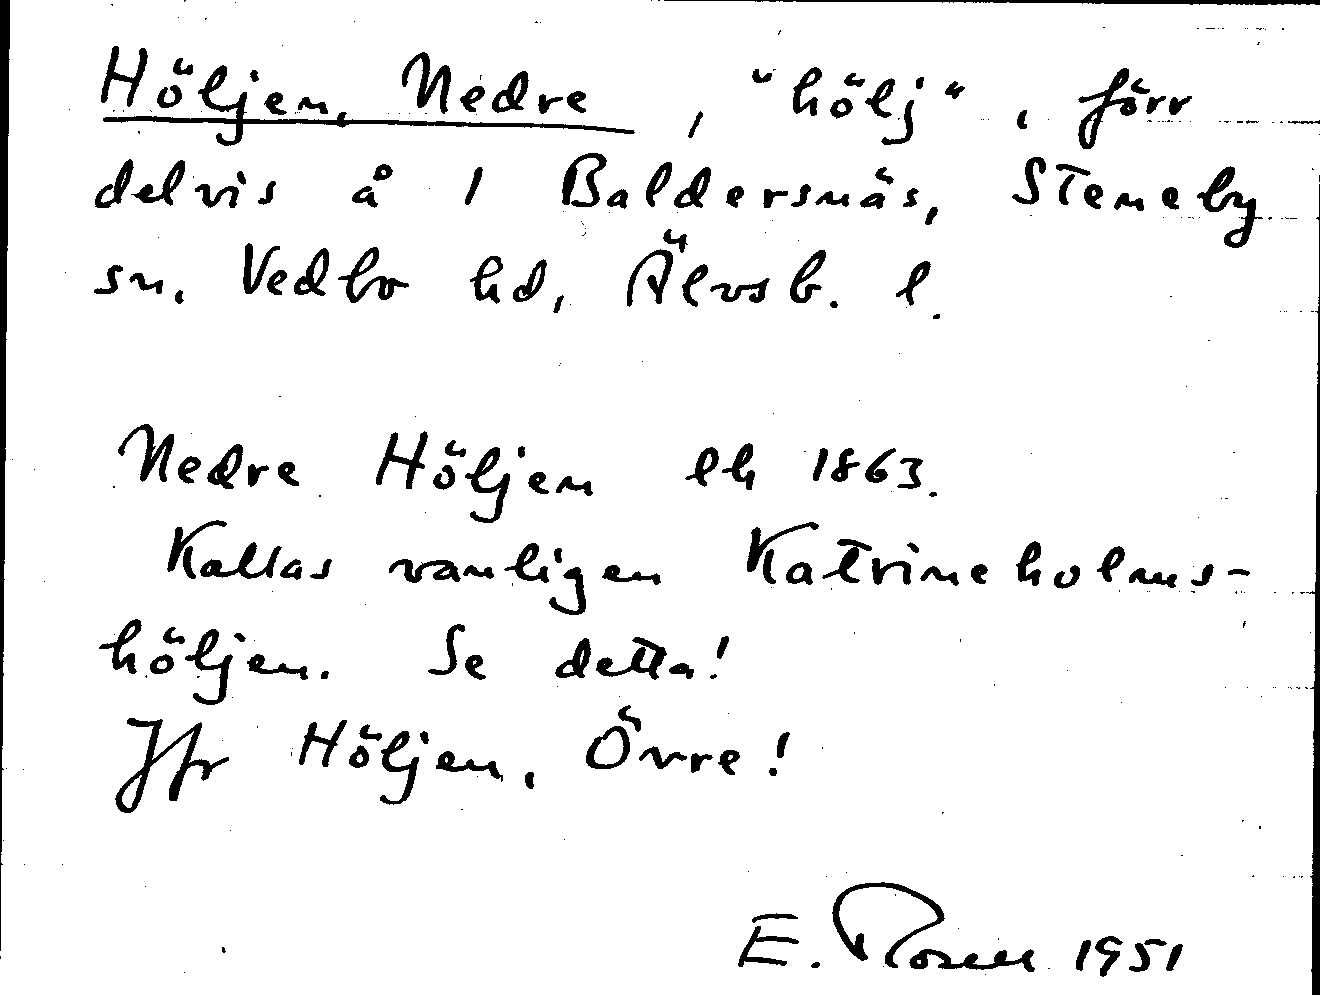 Höljen, Nedre, "hölj", förr
delvis å 1 Baldersnäs, Steneby
sn. Vedbo hd, Älvsb. l.
Nedre Höljen lh 1863.
Kallas vanligen Katrineholms-
höljen. Se detta!
Jfr Höljen, Övre!
E. Rosell 1951